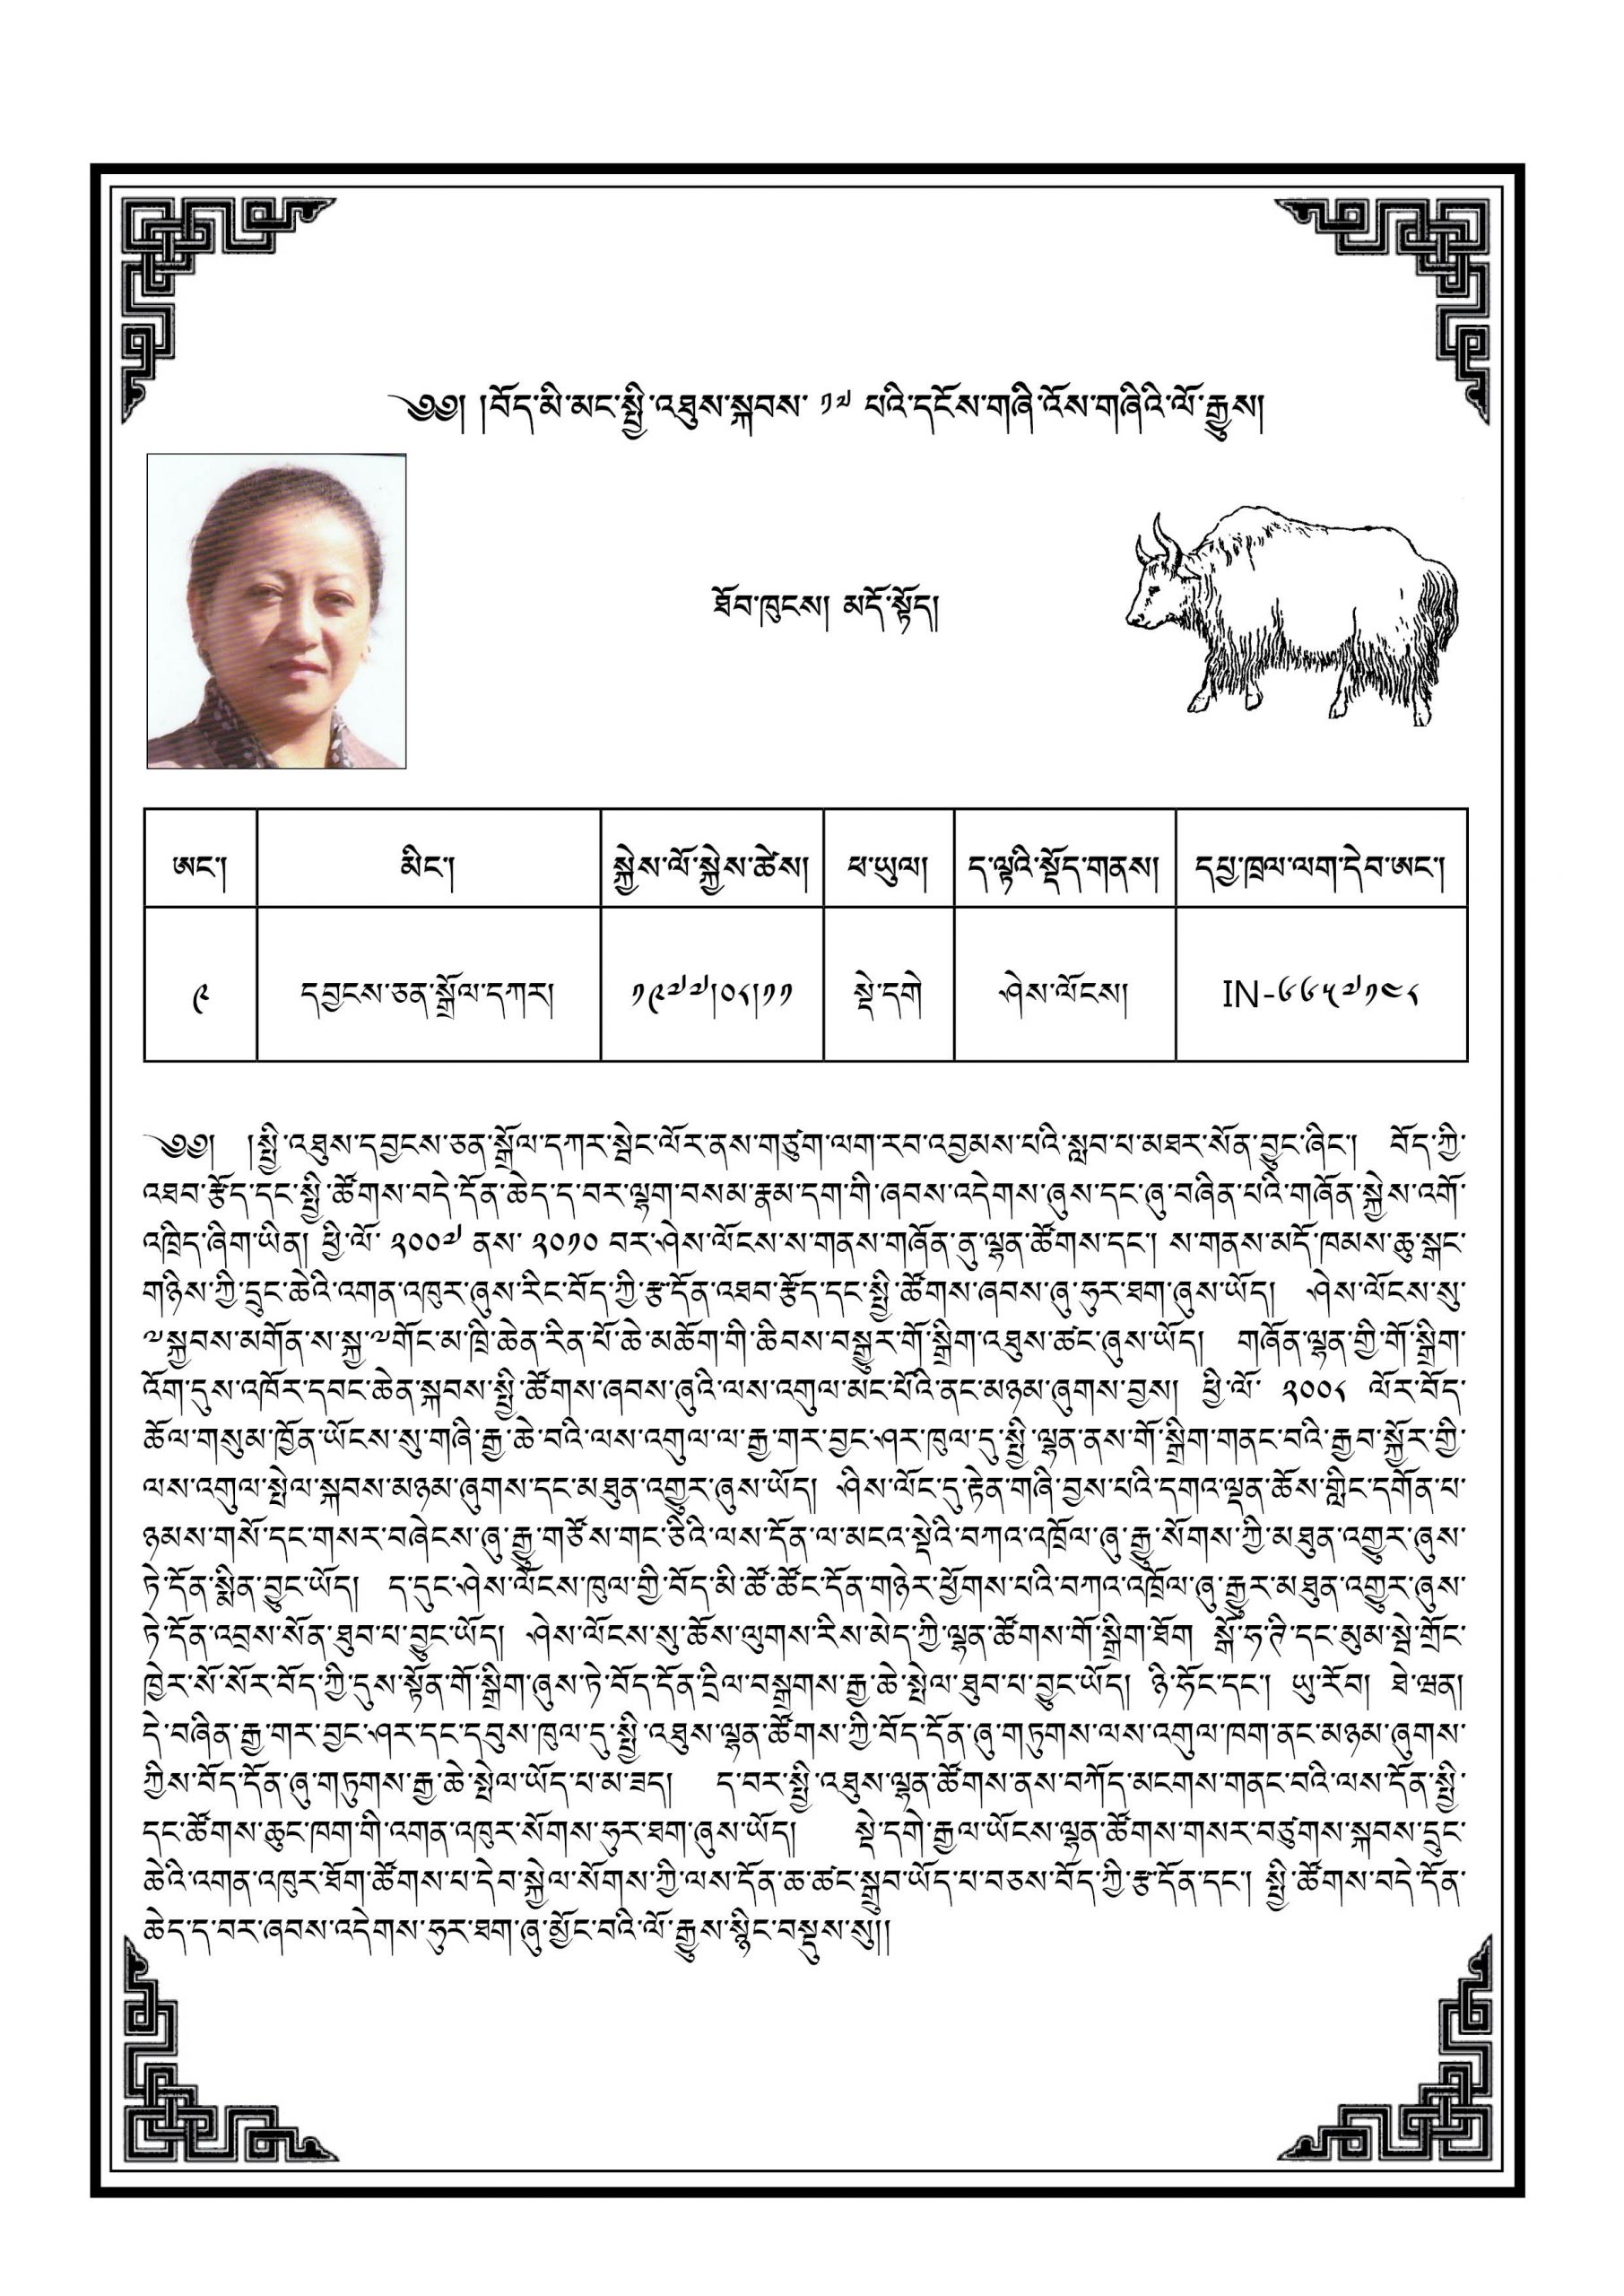 ༄༅། །བོད་མི་མང་སྤྱི་འཐུས་སྐབས་ ༡༧ པའི་དངོས་གཞིའི་འོས་གཞིའི་ལོ་རྒྱུས།
ཐོབ་ཁུངས། མདོ་སྟོད།
ཨང་། མིང་། སྐྱེས་ལོ་སྐྱེས་ཚེས། ཕ་ཡུལ། ད་ལྟའི་སྡོད་གནས། དཔྱ་ཁྲལ་ལག་དེབ་ཨང་།
༩ དབྱངས་ཅན་སྒྲོལ་དཀར། ༡༩༧༧།༠༨།༡༡ སྡེ་དགེ ཤེས་ལོངས། IN-༦༦༥༧༡༤༨
༄༅། །སྤྱི་འཐུས་དབྱངས་ཅན་སྒྲོལ་དཀར་སྦེང་ལོར་ནས་གཙུག་ལག་རབ་འབྱམས་པའི་སླབ་པ་མཐར་སོན་བྱུང་ཞིང་། བོད་ཀྱི་
འཐབ་རྩོད་དང་སྤྱི་ཚོགས་བདེ་དོན་ཆེད་ད་བར་ལྷག་བསམ་རྣམ་དག་གི་ཞབས་འདེགས་ཞུས་དང་ཞུ་བཞིན་པའི་གཞོན་སྐྱེས་འགོ་
འཁྲིད་ཞིག་ཡིན། ཕྱི་ལོ་ ༢༠༠༧ ནས་ ༢༠༡༠ བར་ཤེས་ལོངས་ས་གནས་གཞོན་ནུ་ལྷན་ཚོགས་དང་། ས་གནས་མདོ་ཁམས་ཆུ་སྒང་
གཉིས་ཀྱི་དྲུང་ཆེའི་འགན་འཁུར་ཞུས་རིང་བོད་ཀྱི་རྩ་དོན་འཐབ་རྩོད་དང་སྤྱི་ཚོགས་ཞབས་ཞུ་ཧུར་ཐག་ཞུས་ཡོད། ཤེས་ལོངས་སུ་
༸སྐྱབས་མགོན་ས་སྐྱ་༸གོང་མ་ཁྲི་ཆེན་རིན་པོ་ཆེ་མཆོག་གི་ཆིབས་བསྒྱུར་གོ་སྒྲིག་འཐུས་ཚང་ཞུས་ཡོད། གཞོན་ལྷན་གྱི་གོ་སྒྲིག་
འོག་དུས་འཁོར་དབང་ཆེན་སྐབས་སྤྱི་ཚོགས་ཞབས་ཞུའི་ལས་འགུལ་མང་པོའི་ནང་མཉམ་ཞུགས་བྱས། ཕྱི་ལོ་ ༢༠༠༨ ལོར་བོད་
ཆོལ་གསུམ་ཁྱོན་ཡོངས་སུ་གཞི་རྒྱ་ཆེ་བའི་ལས་འགུལ་ལ་རྒྱ་གར་བྱང་ཤར་ཁུལ་དུ་སྤྱི་ལྷན་ནས་གོ་སྒྲིག་གནང་བའི་རྒྱབ་སྐྱོར་གྱི་
ལས་འགུལ་སྤེལ་སྐབས་མཉམ་ཞུགས་དང་མཐུན་འགྱུར་ཞུས་ཡོད། ཤིས་ལོང་དུ་རྟེན་གཞི་བྱས་པའི་དགའ་ལྡན་ཆོས་གླིང་དགོན་པ་
ཉམས་གསོ་དང་གསར་བཞེངས་ཞུ་རྒྱུ་གཙོས་གང་ཅིའི་ལས་དོན་ལ་མངའ་སྡེའི་བཀའ་འཁྲོལ་ཞུ་རྒྱུ་སོགས་ཀྱི་མཐུན་འགྱུར་ཞུས་
ཏེ་དོན་སྨིན་བྱུང་ཡོད། ད་དུང་ཤེས་ལོངས་ཁུལ་གྱི་བོད་མི་ཚོ་ཚོང་དོན་གཉེར་ཕྱོགས་པའི་བཀའ་འཁྲོལ་ཞུ་རྒྱུར་མཐུན་འགྱུར་ཞུས་
ཏེ་དོན་འབྲས་སོན་ཐུབ་པ་བྱུང་ཡོད། ཤེས་ལོངས་སུ་ཆོས་ལུགས་རིས་མེད་ཀྱི་ལྷན་ཚོགས་གོ་སྒྲིག་ཐོག སྒོ་ཧ་ཊི་དང་མུམ་སྦེ་གྲོང་
ཁྱེར་སོ་སོར་བོད་ཀྱི་དུས་སྟོན་གོ་སྒྲིག་ཞུས་ཏེ་བོད་དོན་དྲིལ་བསྒྲགས་རྒྱ་ཆེ་སྤེལ་ཐུབ་པ་བྱུང་ཡོད། ཉི་ཧོང་དང་། ཡུ་རོབ། ཐེ་ཝན།
དེ་བཞིན་རྒྱ་གར་བྱང་ཤར་དང་དབུས་ཁུལ་དུ་སྤྱི་འཐུས་ལྷན་ཚོགས་ཀྱི་བོད་དོན་ཞུ་གཏུགས་ལས་འགུལ་ཁག་ནང་མཉམ་ཞུགས་
ཀྱིས་བོད་དོན་ཞུ་གཏུགས་རྒྱ་ཆེ་སྤེལ་ཡོད་པ་མ་ཟད། ད་བར་སྤྱི་འཐུས་ལྷན་ཚོགས་ནས་བཀོད་མངགས་གནང་བའི་ལས་དོན་སྤྱི་
དང་ཚོགས་ཆུང་ཁག་གི་འགན་འཁུར་སོགས་ཧུར་ཐག་ཞུས་ཡོད། སྡེ་དགེ་རྒྱལ་ཡོངས་ལྷན་ཚོགས་གསར་བཙུགས་སྐབས་དྲུང་
ཆེའི་འགན་འཁུར་ཐོག་ཚོགས་པ་དེབ་སྐྱེལ་སོགས་ཀྱི་ལས་དོན་ཆ་ཚང་སྒྲུབ་ཡོད་པ་བཅས་བོད་ཀྱི་རྩ་དོན་དང་། སྤྱི་ཚོགས་བདེ་དོན་
ཆེད་ད་བར་ཞབས་འདེགས་ཧུར་ཐག་ཞུ་མྱོང་བའི་ལོ་རྒྱུས་སྙིང་བསྡུས་སུ།།